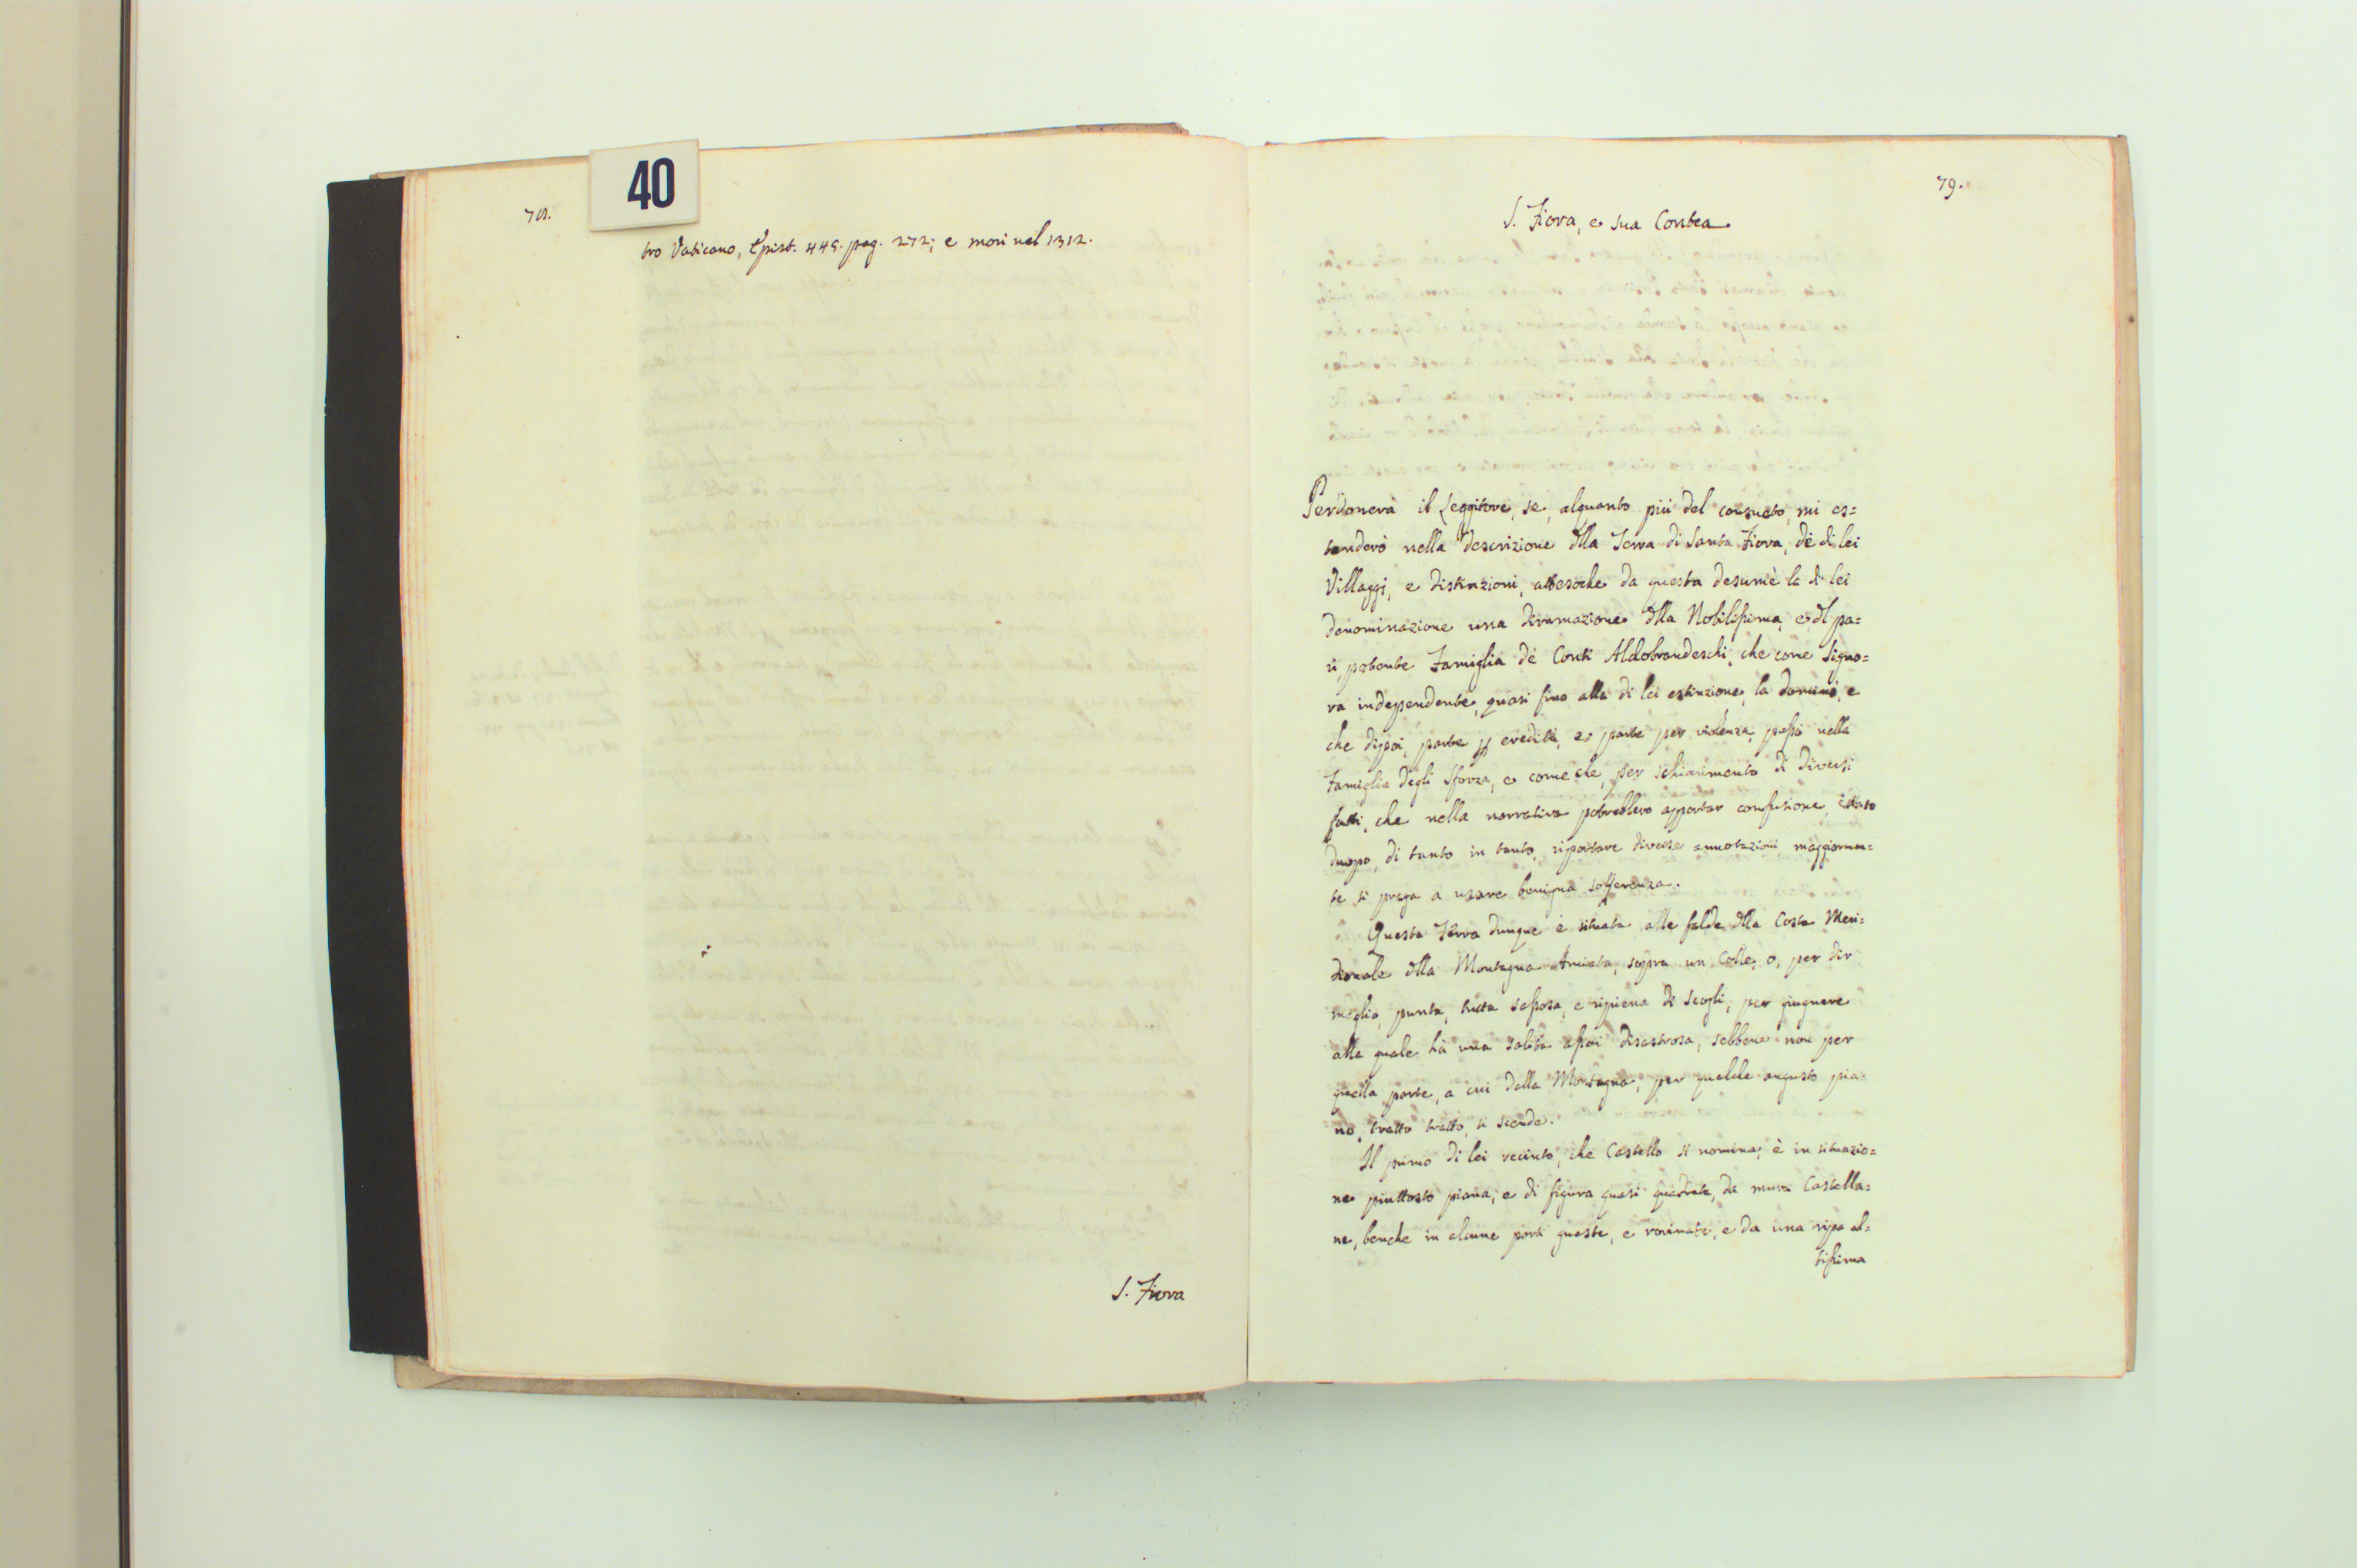 40
78.
tro Vaticano, Epist. 449. pag. 272; e morì nel 1312.
S. Fiora
79.
S. Fiora, e sua Contea
Perdonerà il Leggitore, se, alquanto più del consueto, mi es=
tenderò nella descrizione dlla Terra di Santa Fiora, dè di lei
Villaggi, e distinzioni, attesoche da questa desumè la di lei
denominazione una diramazione dlla Nobilissima, e dl pa=
ri, potente Famiglia dè Conti Aldobrandeschi, che come Signo=
ra independente, quasi fino alla di lei estinzione, la dominò, e
che dipoi, parte p eredità, e parte per violenza, passò nella
Famiglia degli Sforza, e come che, per schiarimento di diversi
fatti, che nella narrativa potrebbero apportar confusione, è stato
duopo, di tanto in tanto, riportare diverse annotazioni, maggiormen=
te si prega a usare benigna sofferenza.
Questa Terra dunque è situata alle falde dlla Costa Meri=
dionale dlla Montagna Amiata, sopra un Colle, o, per dir
meglio, punta, tutta sassosa, e ripiena di scogli, per giugnere
alla quale hà una salita assai disastrosa, sebbene non per
quella parte, a cui dalla Montagna, per qualche angusto pia=
no, tratto tratto, si scende.
Il primo di lei recinto, che Castello si nomina, è in situazio=
ne piuttosto piana, e di figura quasi quadrata, da mura Castella=
ne, benche in alcune parti guaste, e rovinate, e da una ripa al=
tissima